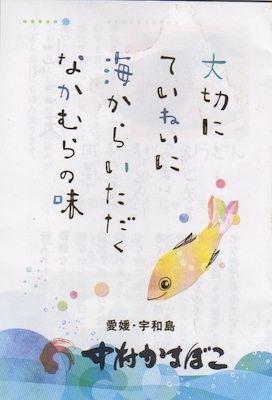 大切に
ていねいに
海からいただく
なかむらの味
愛媛・宇和島
中村かまぼこ